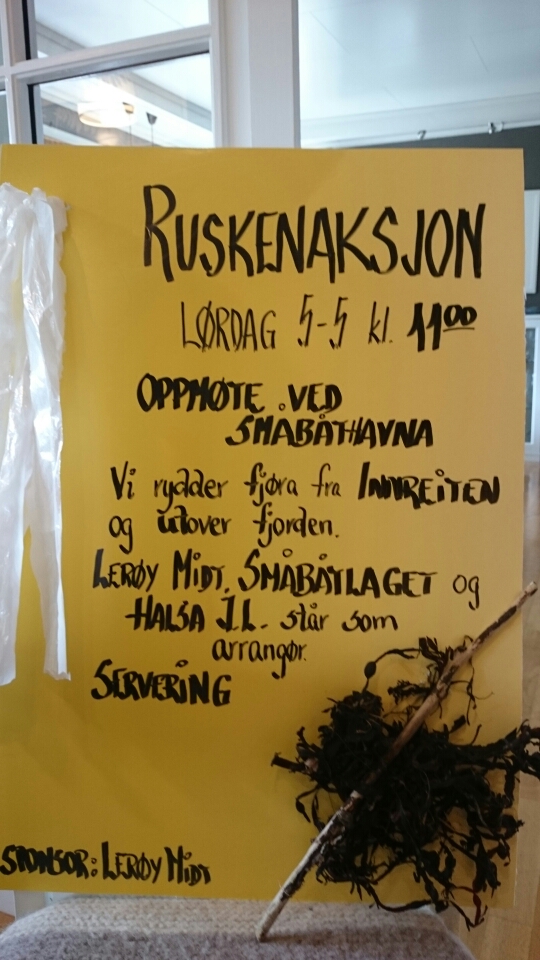 RUSKENAKSJON
LØRDAG 5-5 kl. 11⁰⁰
OPPMØTE VED
SMÅBÅTHAVNA
Vi rydder fjøra fra INNREITEN
og utover fjorden.
LERØY MIDT, SMÅBÅTLAGET og
HALSA I.L. står som
arrangør.
SERVERING
SPONSOR: LERØY MIDT